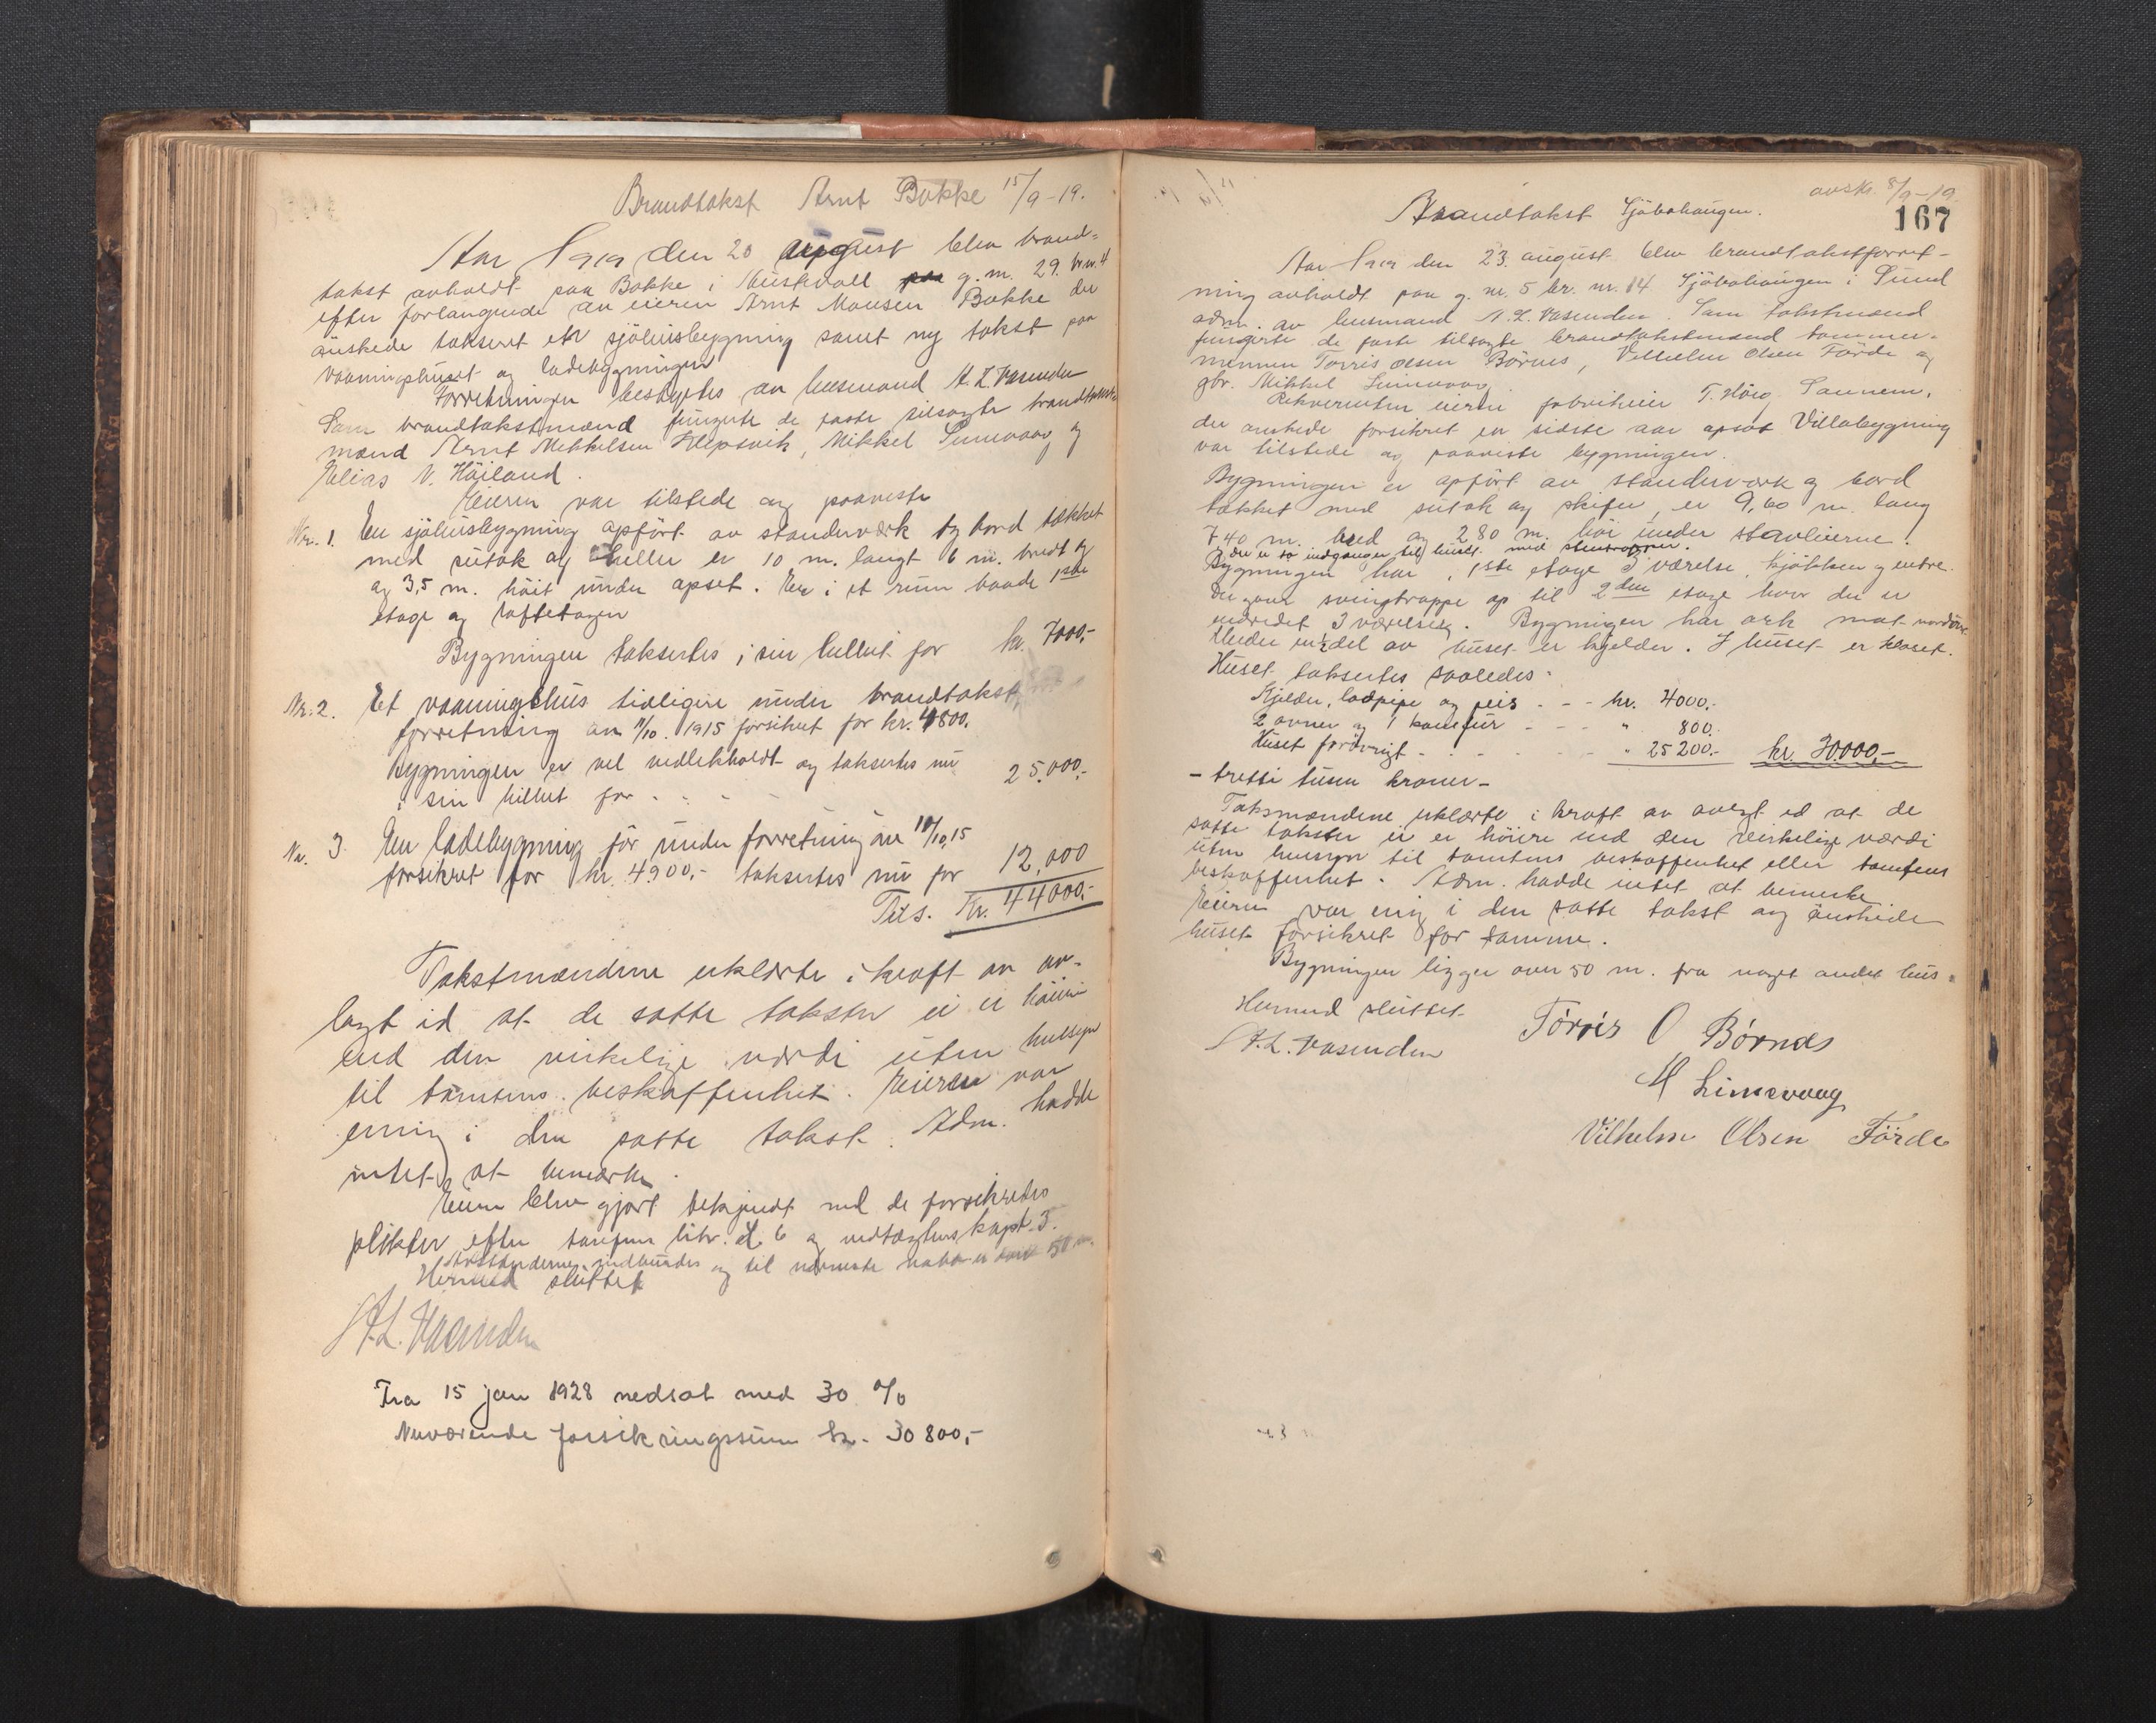 Brandtakst Arnt Bakke 15/9-19.
Aar 1919 den 20 august blev brand-
takst avholdt paa Bakke i Austevoll g. nr. 29. br.nr. 4
efter forlangende av eieren Arnt Monsen Bakke der
ønskede taksert et sjøhusbygning samt ny takst paa
vaaningshuset og ladebygningen
Forretningen bestyrtes av lensmand A. L. Vasenden
Som brandtakstmænd fungerte de faste tilsagte brandtakst-
mænd Arnt Mikkelsen Hepsøek, Mikkel Limevaag og
Elias N. Høiland.
Eieren var tilstede og paaviste
Nr. 1. En sjøhusbygning opført av standerværk og bord tækket
med sutak og heller er 10 m. langt 6 m. bredt og
og 3,5 m. høit under opset. Er i et rum baade 1ste
etage og loftetagen
Bygningen taksertes i sin helhet for kr. 7000,-
Nr. 2. Et vaaningshus tidligere under brandtakst
forretning av 11/10. 1915 forsikret for kr. 4800.
Bygningen er vel vedlikeholdt og taksertes nu
i sin helhet for - - - 25,000,-
Nr. 3. En ladebygning før under forretning av 11/10,15
forsikret for kr. 4900,- taksertes nu for 12,000
Tils. Kr. 44000,-
Takstmændene erklærte i kraft av av-
lagt ed at de satte takster ei er høiere
end den virkelige værdi uten hensyn
til tomtens beskaffenhet. Eieren var
enig i den satte takst. Adm. hadde
intet at bemerke.
Eieren blev gjort bekjendt med de forsikredes
plikter efter tariffens litr. d. 6 og vedtægtens kapt. 3.
Avstanderne indbyrdes og til nærmeste nabo er over 50 m.
Hermed sluttet
A. L. Vasenden
Fra 15 jan 1928 nedsat med 30 %
Nuværende forsikringssum kr. 30800,-
avskr. 8/9-19.
167
Brandtakst Sjøbøhaugen.
Aar 1919 den 23. august blev brandtakstforret-
ning avholdt paa g. nr. 5 br. nr. 14 Sjøbøhaugen i Sund
adm. av lensmand A. L. Vasenden. Som takstmænd
fungerte de faste tilsagte brandtakstmænd tømmer-
mennen Tørris Olsen Børnes, Vilhelm Olsen Førde og
gbr. Mikkel Limevaag.
Rekvirenten eieren fabrikeier T. Høig, Sannem,
der ønskede forsikret en sidste aar opsat Villabygning
var tilstede og paaviste bygningen.
Bygningen er opført av standerverk og bord
tækket med sutak og skifer, er 9,60 m. lang
7,40 m. bred og 280 m. høi under stavleierne.
Der er to indganger til huset med stentrapper.
Bygningen har i 1ste etage 3 værelse, kjøkken og entre.
Der gaar svingtrappe op til 2den etage hvor der er
indredet 3 værelse. Bygningen har ark mot nordøst.
Under en ½ del av huset er kjelder. I huset er kloset.
Huset taksertes saaledes:
Kjelder, ladpipe og peis - - - kr. 4000.-
2 ovner og 1 komfur - - - " 800.
Huset forøvrigt - - - - " 25200.- kr. 30.000,-
- tretti tusen kroner -
Taksmændene erklærte i kraft av avlagt ed at de
satte takster ei er høiere end den virkelige værdi
uten hensyn til tomtens beskaffenhet eller tomtens
beskaffenhet. Adm. hadde intet at bemerke
Eieren var enig i den satte takst og ønskede
huset forsikret for samme.
Bygningen ligger over 50 m. fra noget andet hus.
Hermed sluttet
A. L. Vasenden Tørris O Børnes
M Limevaag
Vilhelm Olsen Førde